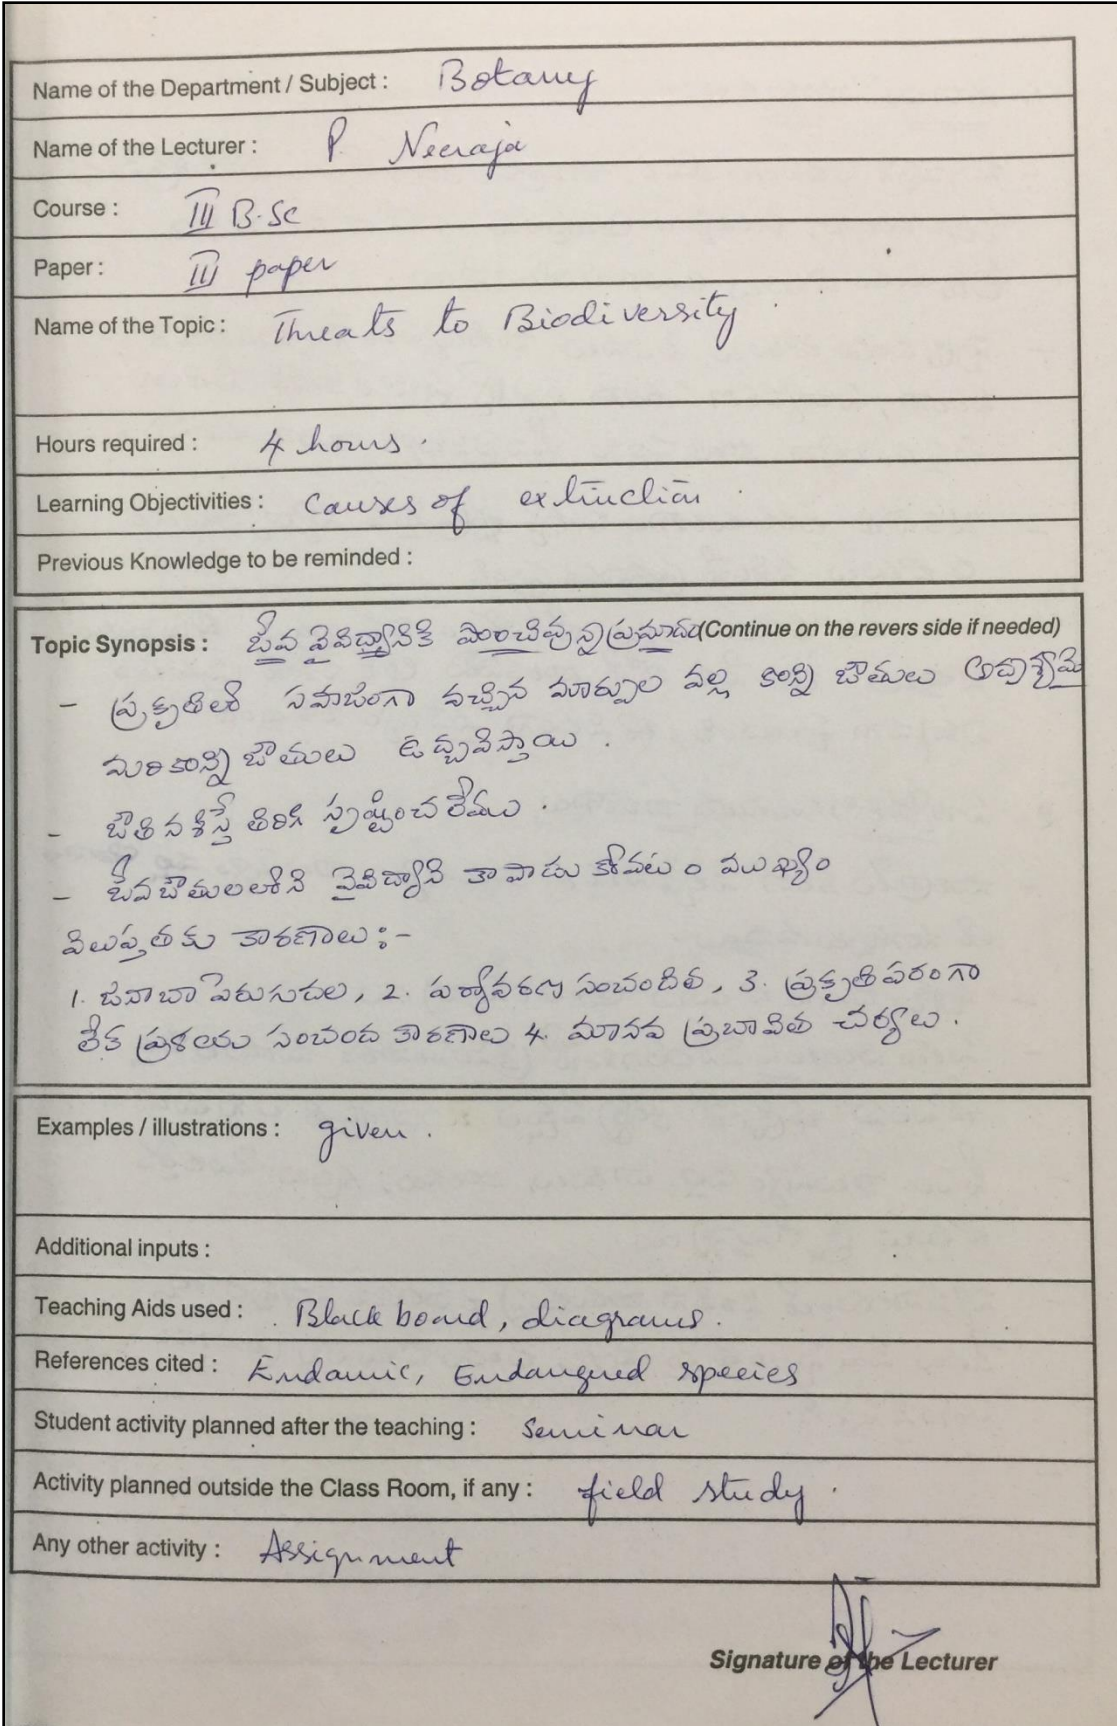 Name of the Department / Subject : Botany
Name of the Lecturer : P. Neeraja
Course : III B.Sc
Paper : III paper
Name of the Topic : Threats to Biodiversity.
Hours required : 4 hours.
Learning Objectivities : Causes of extinction.
Previous Knowledge to be reminded :
Topic Synopsis : జీవ వైవిద్యానికి పొంచివున్న ప్రమాదం (Continue on the revers side if needed)
- ప్రకృతిలో సహజంగా వచ్చిన మార్పుల వల్ల కొన్ని జాతులు అదృశ్యమై
మరికొన్ని జాతులు ఉద్భవిస్తాయి.
- జాతి నశిస్తే తిరిగి సృష్టించలేము.
- జీవజాతులలోని వైవిద్యాని కాపాడు కోవటం ముఖ్యం
విలుప్తతకు కారణాలు :-
1. జనాబా పెరుగుదల, 2. పర్యావరణ సంబందిత, 3. ప్రకృతిపరంగా
లేక ప్రళయ సంబంద కారణాలు 4. మానవ ప్రబావిత చర్యలు.
Examples / illustrations : given.
Additional inputs :
Teaching Aids used : Black board, diagrams.
References cited : Endamic, Endangured species
Student activity planned after the teaching : Seminar
Activity planned outside the Class Room, if any : field study.
Any other activity : Assignment
Signature of the Lecturer